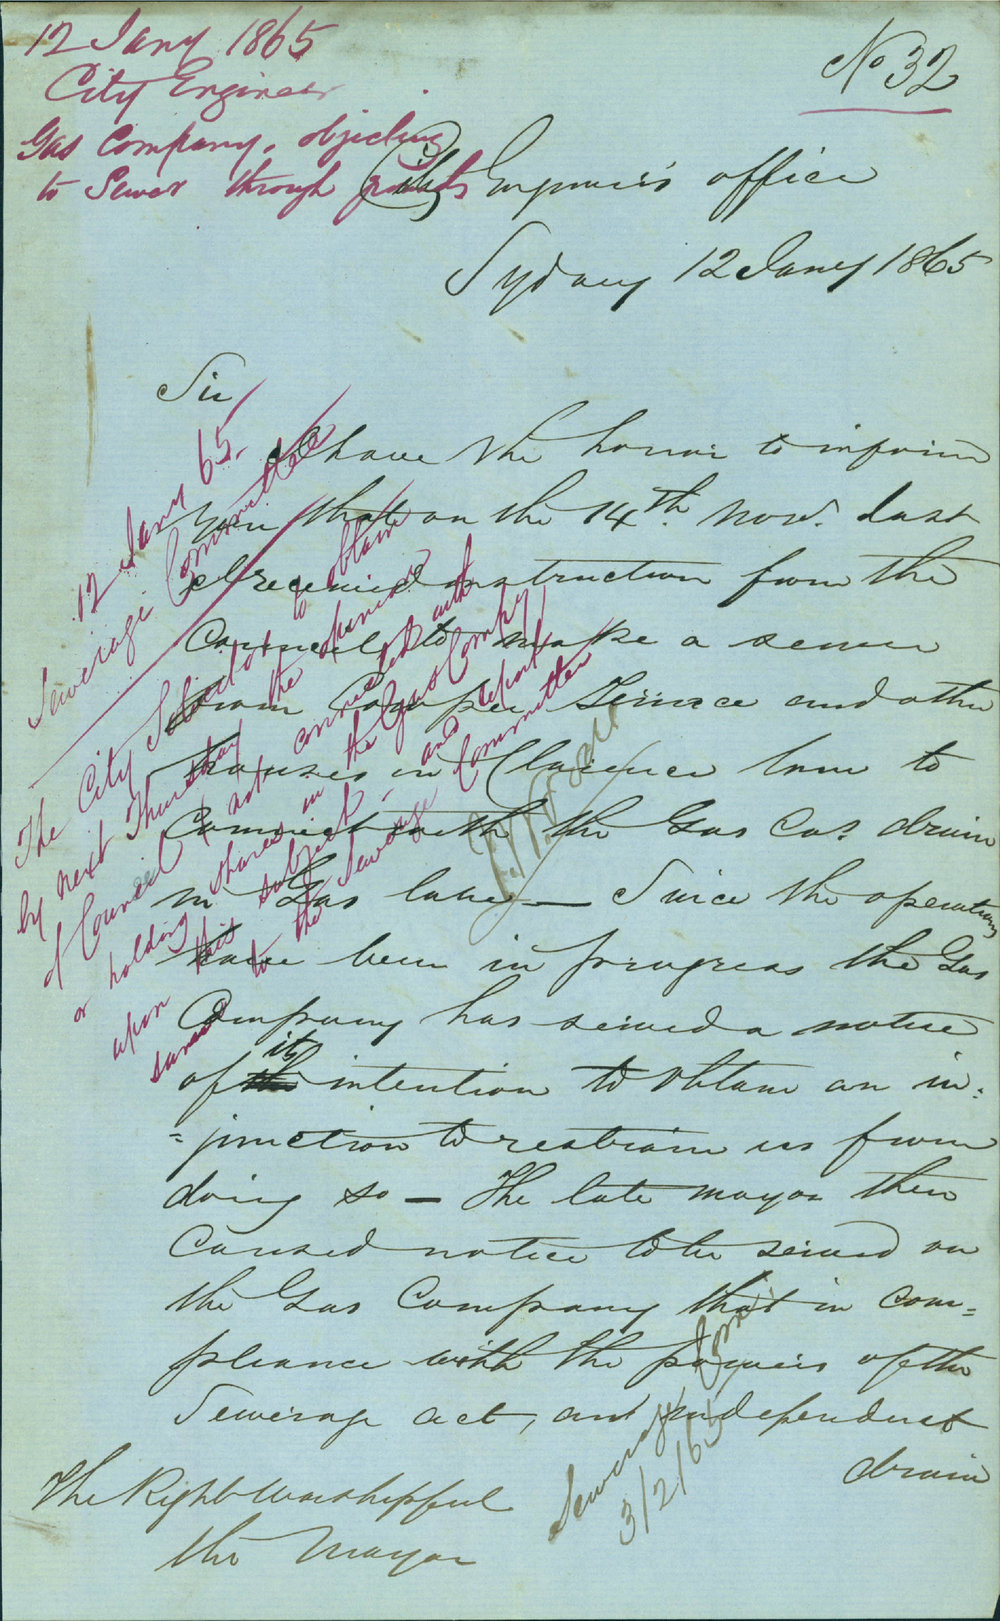 12 Jany 1865
City Engineer
Gas Company, objecting
to Sewer through grounds
No 32
City Engineer's office
Sydney 12 Jany 1865
Sir
I have the honor to inform
you that on the 14th. Novr. last
I received instruction from the
Council to make a sewer
from Cowper Terrace and other
houses in Clarence Lane to
Connect with the Gas Cos. drain
in Gas lane — Since the operations
have been in progress the Gas
Company has served a notice
of its intention to obtain an in-
=junction to restrain us from
doing so — The late mayor then
Caused notice to be served on
the Gas Company that in com=
pliance with the powers of the
Sewerage act, an independent
drain
The Right Worshipful
the Mayor
12 Jany 65.
Sewerage Committee
The City Solicitor to obtain
by next Thursday the opinion
of Counsel not connected with
or holding shares in the Gas Compy
upon this subject - and report
same to the Sewerage Committee
Sewerage Com
3/2/65